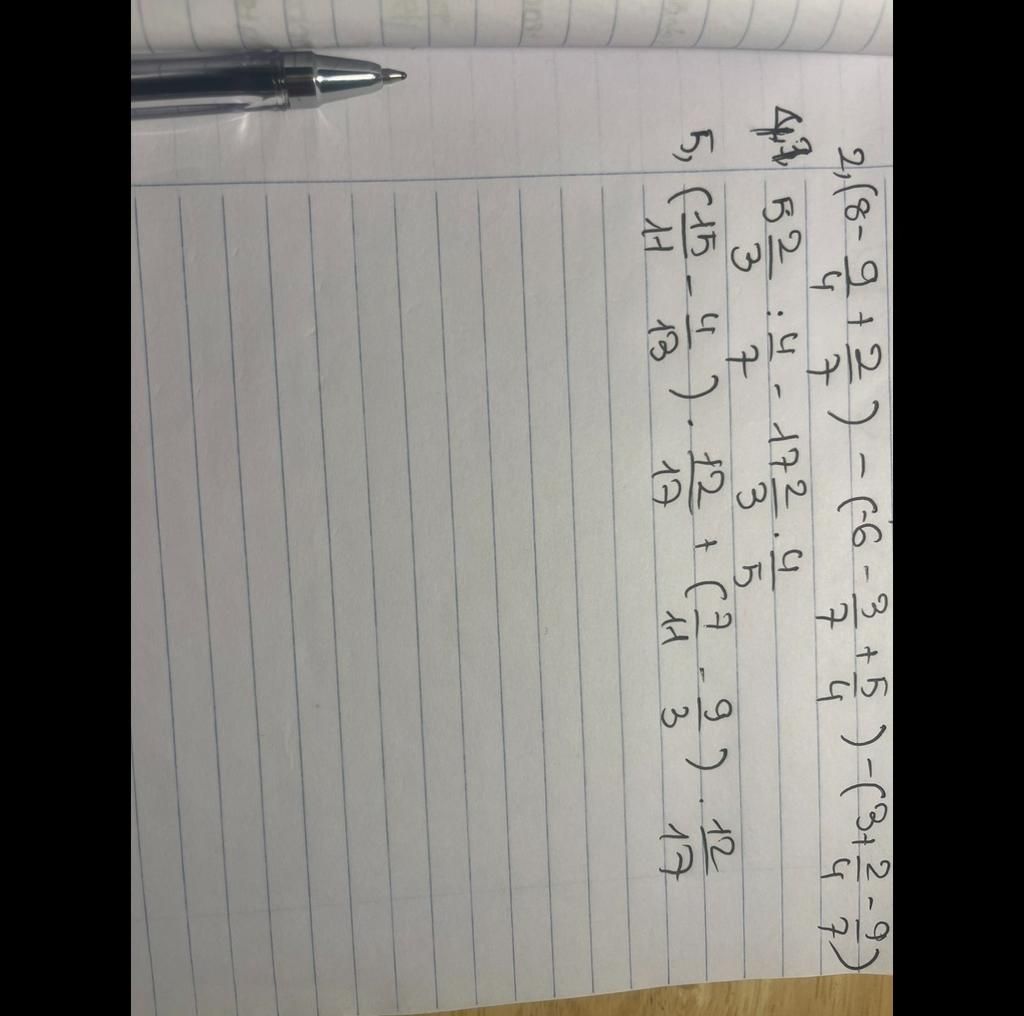 2, (8 - 9/4 + 2/7) - (-6 - 3/7 + 5/4) - (3 + 2/4 - 9/7)
4, 5 2/3 : 4/7 - 17 2/3 . 4/5
5, (15/11 - 4/13) . 12/17 + (7/11 - 9/3) . 12/17